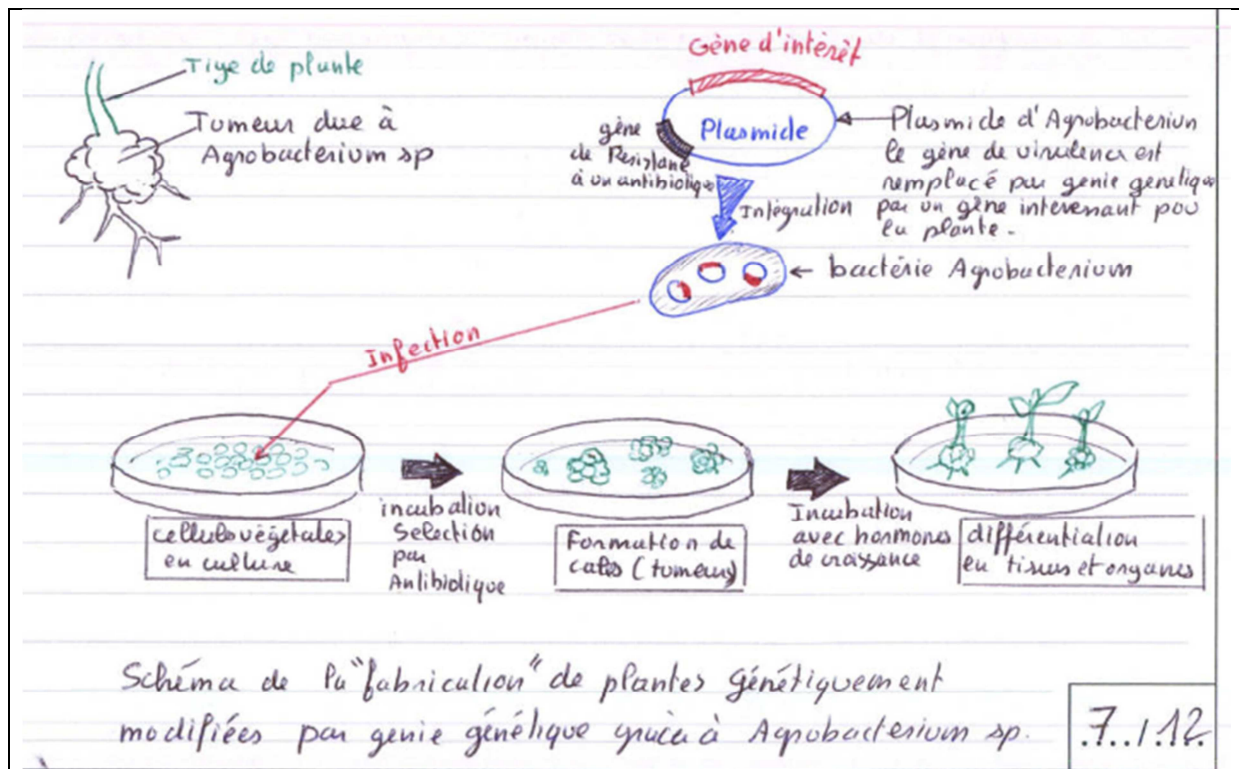 Tige de plante
Tumeur due à
Agrobacterium sp
Gène d'intérêt
Plasmide
gène
de Résistane
à un antibiotique
Plasmide d'Agrobacterium
le gène de virulence est
remplacé par genie genetique
par un gène interessant pou
la plante.
Intégration
bactérie Agrobacterium
Infection
cellules végétales
en culture
incubation
Selection
par
Antibiotique
Formation de
cales (tumeurs)
Incubation
avec hormones
de croissance
différentiation
en tissus et organes
Schéma de la "fabrication" de plantes Génétiquement
modifiées par genie génétique grâce à Agrobacterium sp.
.7../.12.